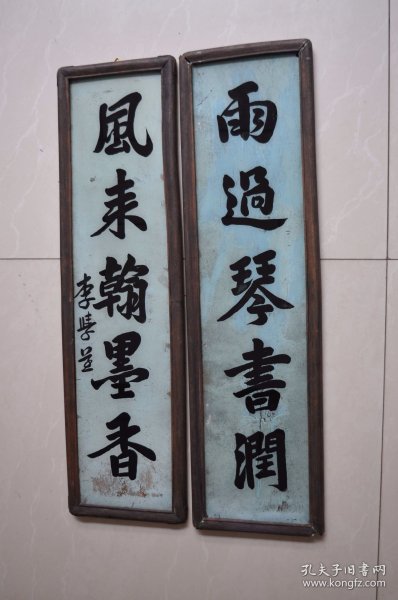 雨過琴書潤
風來翰墨香
孔夫子旧书网
www.kongfz.com